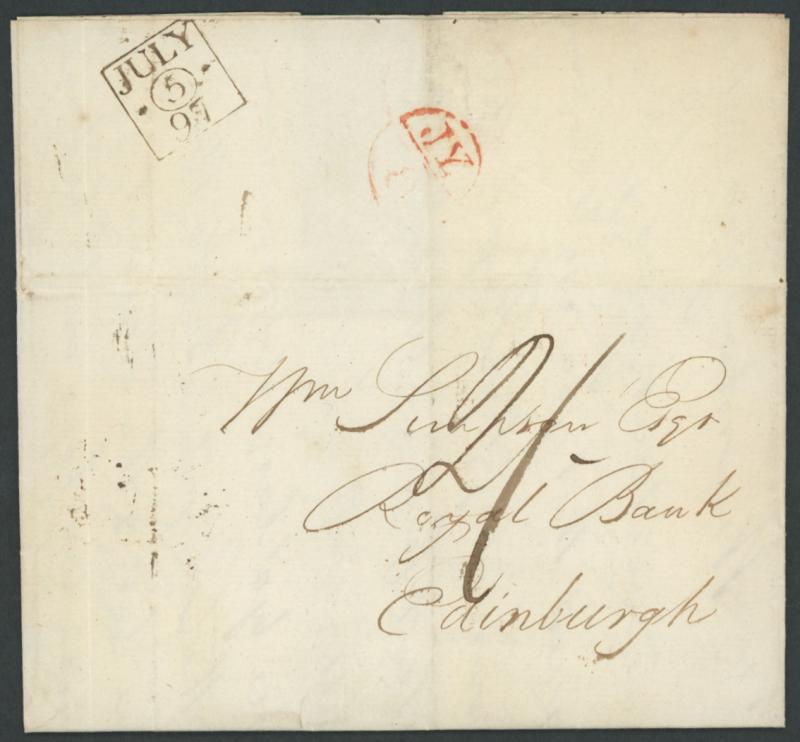 JULY
5
97
JY
Wm Simpson Esqr
2/-
Royal Bank
Edinburgh